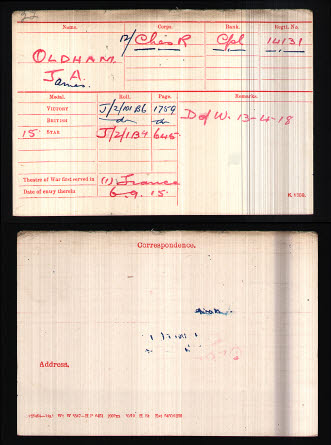 Name. Corps. Rank. Regtl. No.
OLDHAM 12/Ches R Cpl 14131
J. A.
ames.
Medal. Roll. Page. Remarks.
VICTORY J/2/101 B6 1759
BRITISH do do D of W. 13-4-18
15 STAR J/2/1B4 645
Theatre of War first served in (1) France
Date of entry therein 6.9.15 K 1380.
Correspondence.
Address.